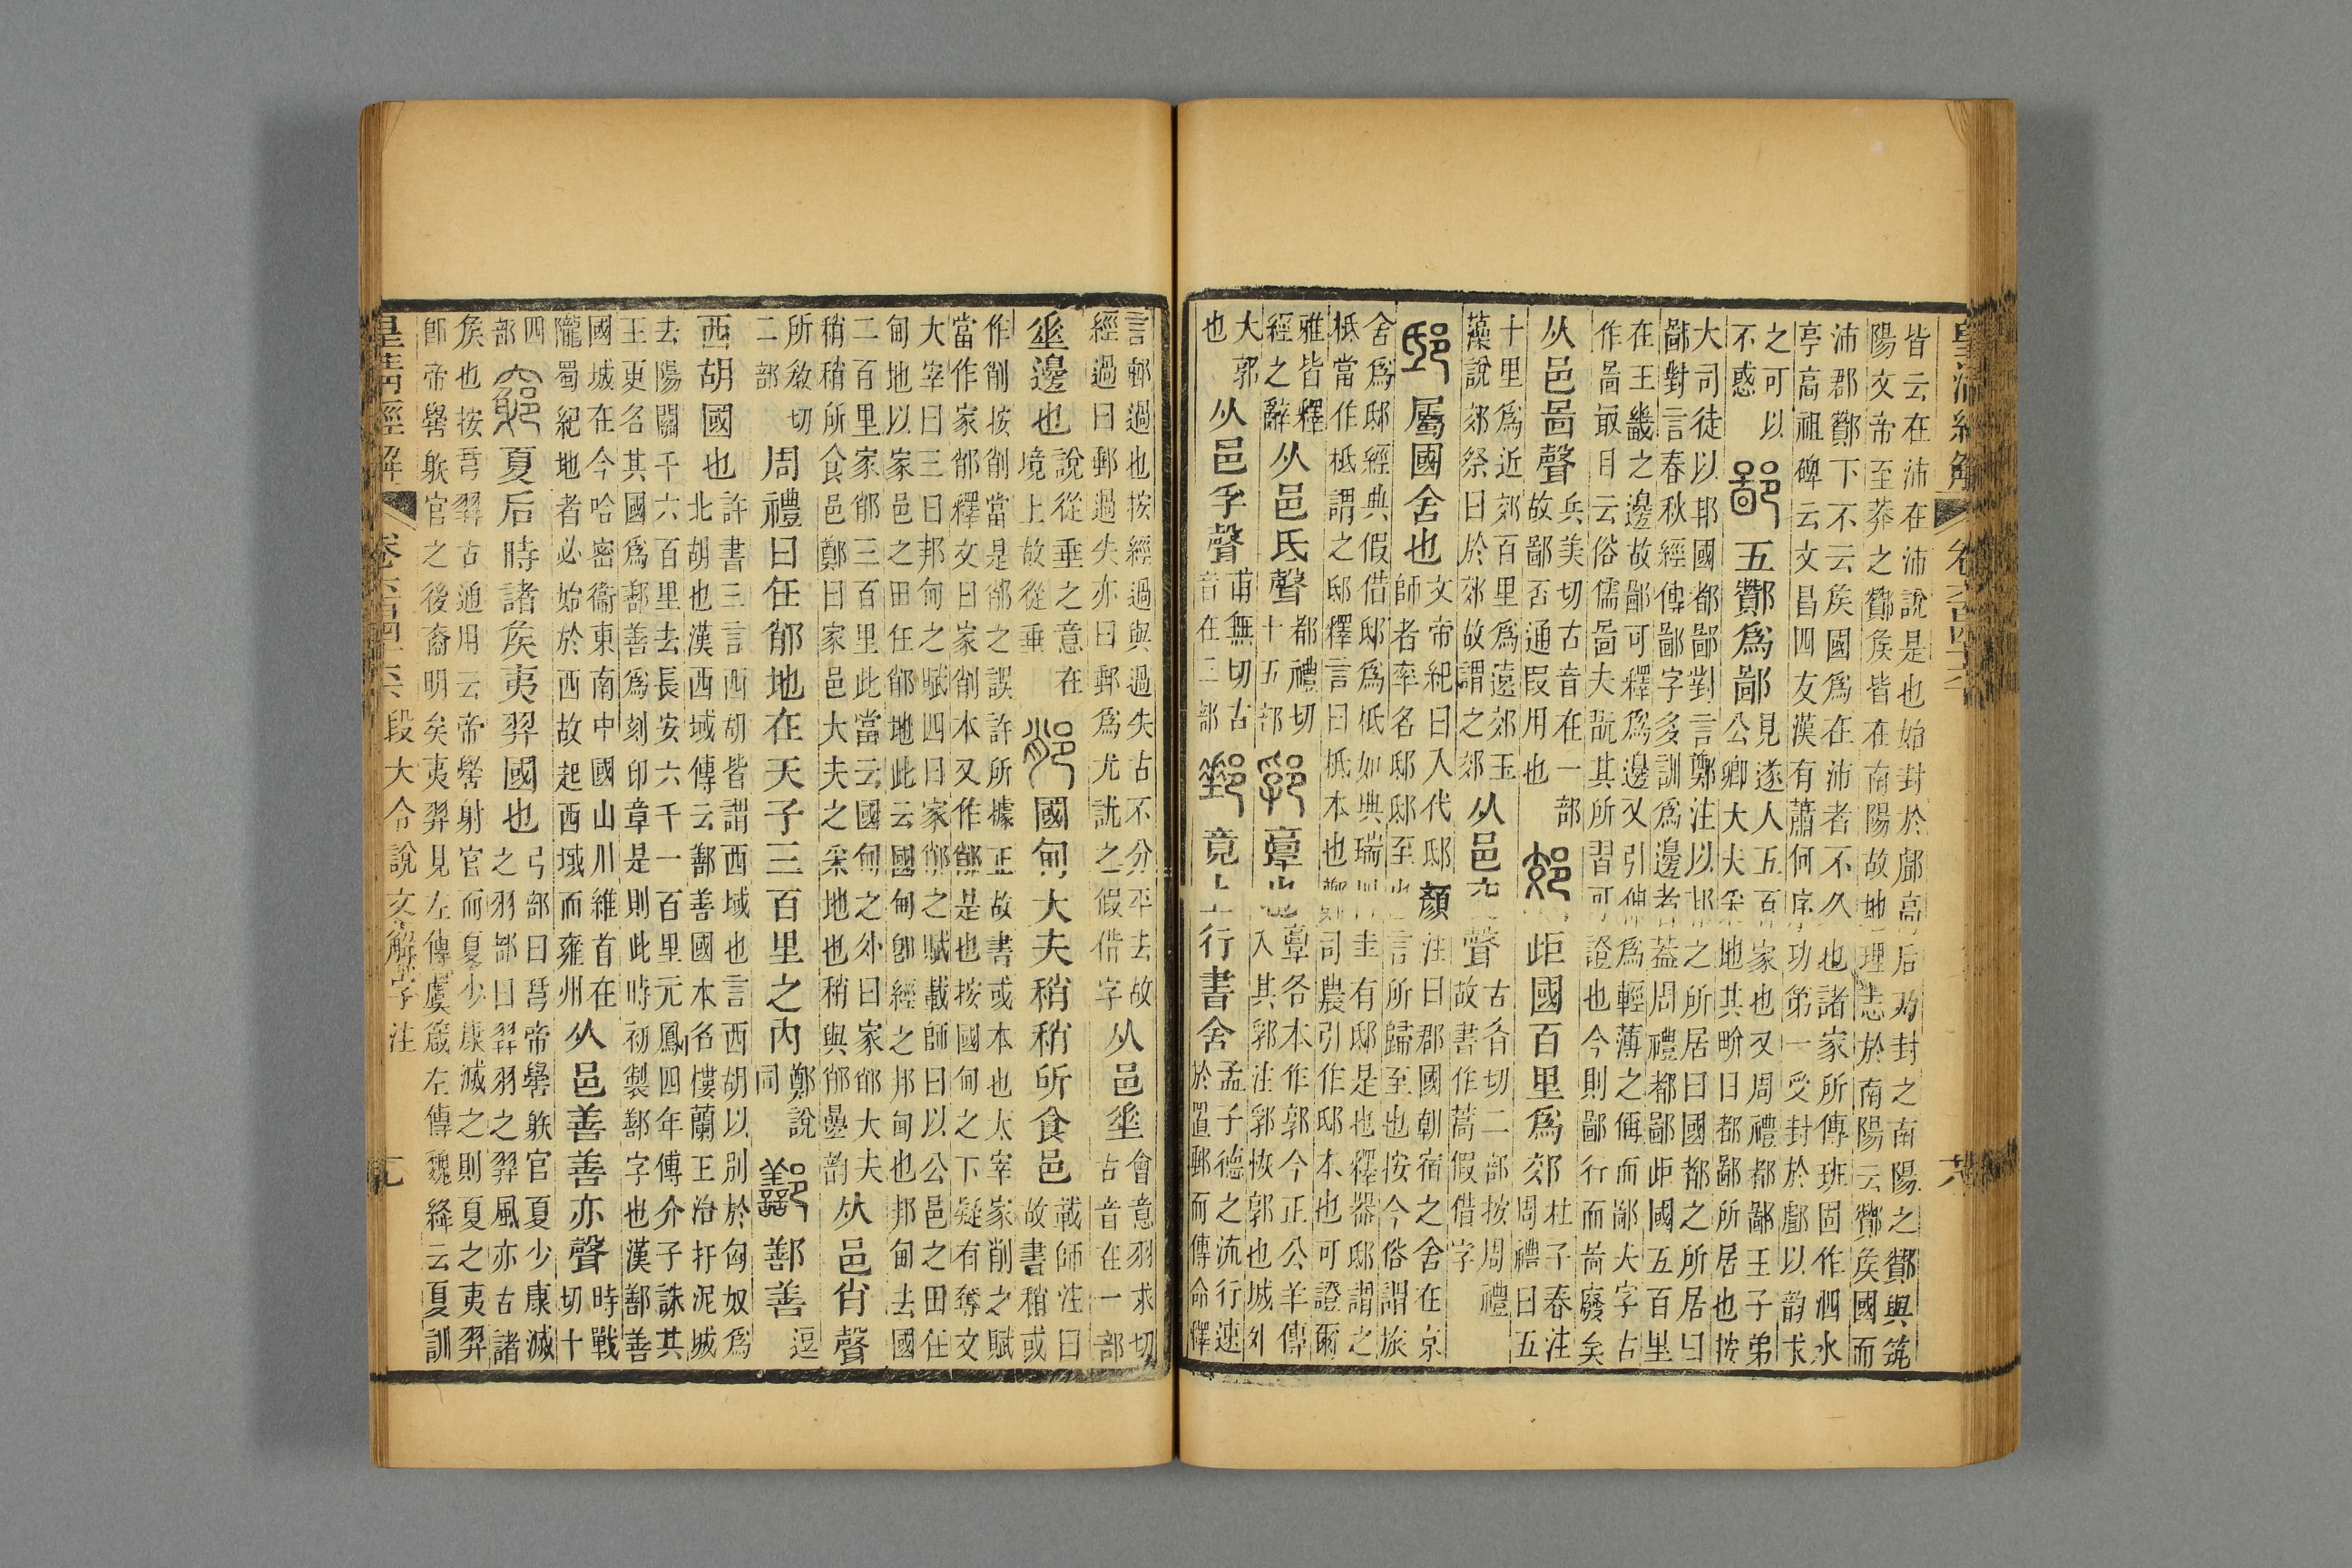 皆云在沛在沛說是也始封於鄌高后乃封之南陽之酇與筑
陽文帝至莽之酇矦皆在南陽故地理志於南陽云酇矦國而
沛郡酇下不云矦國爲在沛者不久也諸家所傳班固作泗水
亭高祖碑云文昌四友漢有蕭何序功第一受封於酇以韵求
之可以
不惑
鄙五酇爲鄙
見遂人五百家也又周禮都鄙王子弟
公卿大夫采地其畍曰都鄙所居也按
大司徒以邦國都鄙對言鄭注以邦之所居曰國都之所居曰
鄙對言春秋經傳鄙字多訓爲邊者葢周禮都鄙歫國五百里
在王畿之邊故鄙可釋爲邊又引伸爲輕薄之偁而鄙大字古
作啚冣目云俗儒啚夫翫其所習可證也今則鄙行而啚廢矣
从邑啚聲
兵美切古音在一部
故鄙否通叚用也
郊歫國百里爲郊
杜子春注
周禮曰五
十里爲近郊百里爲遠郊玉
藻說郊祭曰於郊故謂之郊
从邑交聲
古肴切二部按周禮
故書作蒿假借字
邸屬國舍也
文帝紀曰入代邸顏注曰郡國朝宿之舍在京
師者率名邸邸至也言所歸至也按今俗謂旅
舍爲邸經典假借邸爲柢如典瑞四圭有邸是也釋器邸謂之
柢當作柢謂之邸釋言曰柢本也鄭司農引作邸本也可證爾
雅皆釋
經之辭
从邑氐聲
都禮切
十五部
郛𩫏也
𩫏各本作郭今正公羊傳
入其郛注郛恢郭也城外
大郭
也
从邑孚聲
甫無切古
音在三部
郵竟上行書舍
孟子德之流行速
於置郵而傳命釋
言郵過也按經過與過失古不分平去故
經過曰郵過失亦曰郵爲尤訧之假借字
从邑垂
會意羽求切
古音在一部
垂邊也
說從垂之意在
境上故從垂
䣂國甸大夫稍稍所食邑
載師注曰
故書稍或
作削按削當是䣂之誤許所據正故書或本也太宰家削之賦
當作家䣂釋文曰家削本又作䣂是也按國甸之下疑有奪文
大宰曰三曰邦甸之賦四曰家䣂之賦載師曰以公邑之田任
甸地以家邑之田任䣂地此云國甸卽經之邦甸也邦甸去國
二百里家䣂三百里此當云國甸之外曰家䣂大夫
稍稍所食邑鄭曰家邑大夫之采地也稍與䣂曡韵
从邑肖聲
所敎切
二部
周禮曰任䣂地在天子三百里之內
鄭說
同
鄯鄯善
逗
西胡國也
許書三言西胡皆謂西域也言西胡以別於匈奴爲
北胡也漢西域傳云鄯善國本名樓蘭王治扜泥城
去陽關千六百里去長安六千一百里元鳳四年傅介子誅其
王更名其國爲鄯善爲刻印章是則此時初製鄯字也漢鄯善
國城在今哈密衞東南中國山川維首在
隴蜀紀地者必始於西故起西域而雍州
从邑善善亦聲
時戰
切十
四
部
窮夏后時諸矦夷羿國也
弓部曰𢎗帝嚳躲官夏少康滅
之羽部曰羿羽之羿風亦古諸
矦也按𢎗羿古通用云帝嚳射官而夏少康滅之則夏之夷羿
卽帝嚳躲官之後裔明矣夷羿見左傳虞箴左傳魏絳云夏訓
皇清經解 卷六百四十六 段大令說文解字注